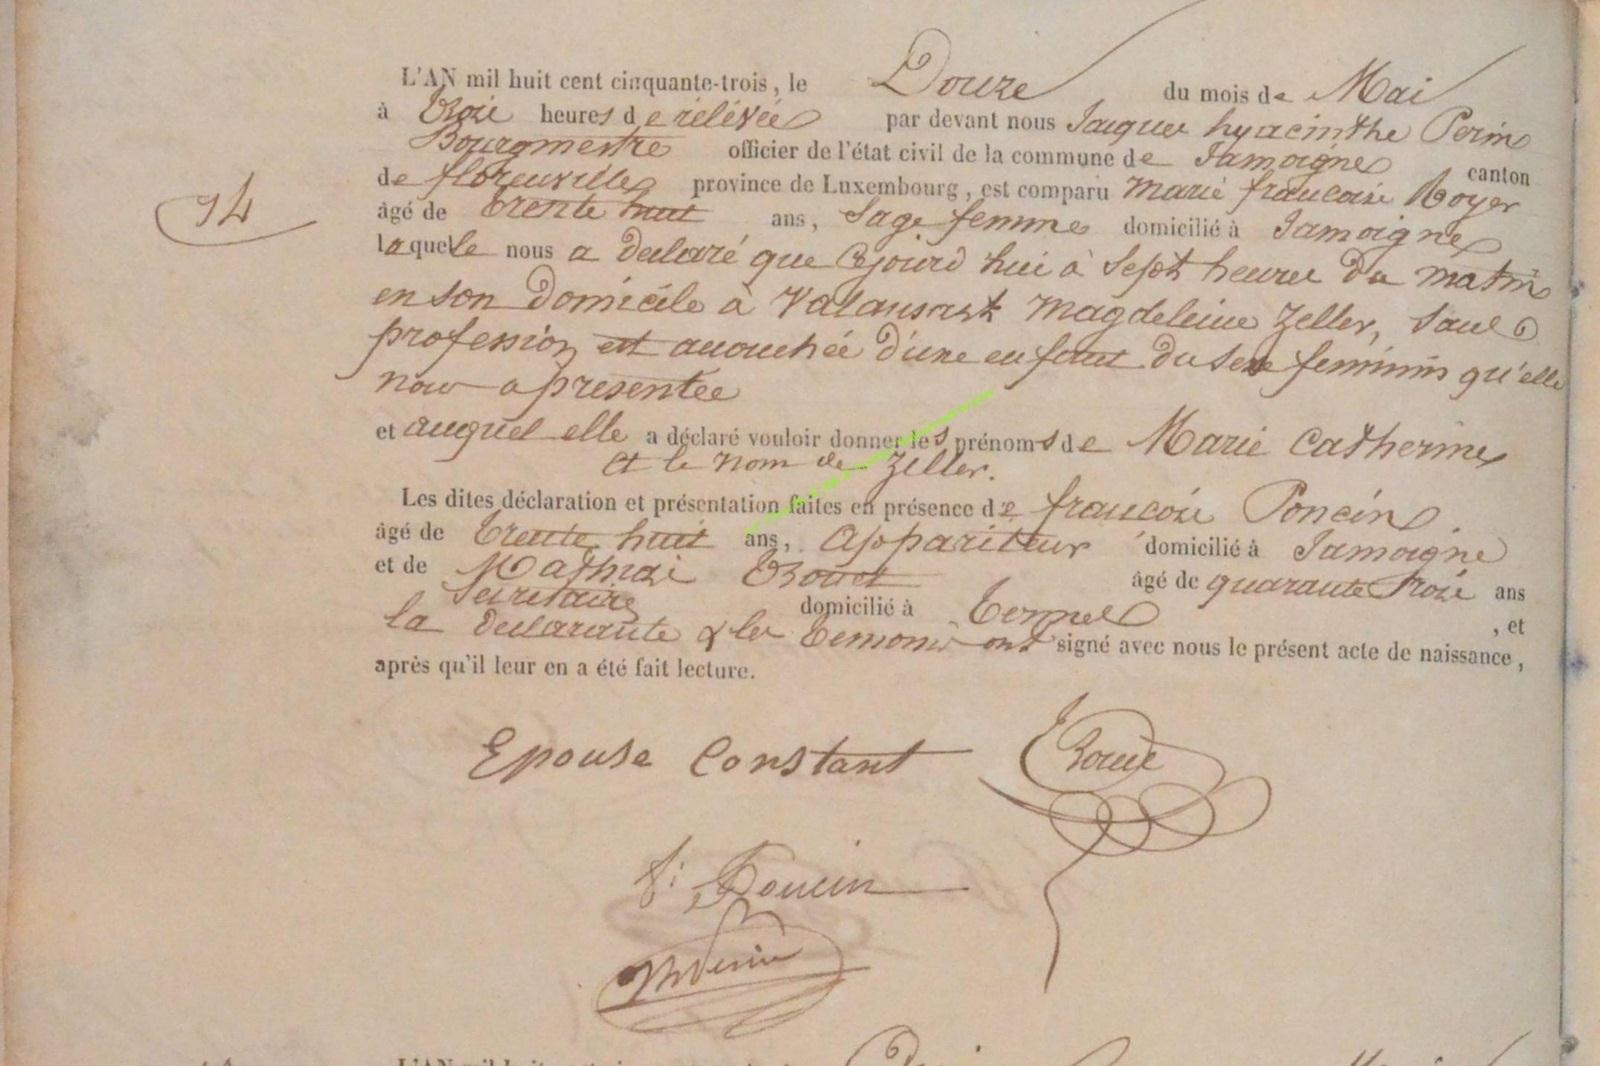 L'AN mil huit cent cinquante-trois, le Douze du mois de Mai
à trois heures de rélévée par devant nous Jacques hyacinthe Perin
Bourgmestre officier de l'état civil de la commune de Jamoigne canton
de florenville province de Luxembourg, est comparu Marie francoise Royer
94
âgé de trente huit ans, Sage femme domicilié à Jamoigne
laquelle nous a declaré que Cejourd hui à Sept heures du matin
en son domicile à Valansart Magdeleine Zeller, Sans
profession est accouchée d'une enfant du sexe feminin qu'elle
nous a presentée
et auquel elle a déclaré vouloir donner les prénoms de Marie Catherine
et le nom de Zeller.
Les dites déclaration et présentation faites en présence de francois Poncin
âgé de trente huit ans, appariteur domicilié à Jamoigne
et de Mathias âgé de quarante trois ans
Secretaire domicilié à Termes , et
la declarante & les temoins ont signé avec nous le présent acte de naissance,
après qu'il leur en a été fait lecture.
Epouse Constant
Poncin
L'AN mil huit